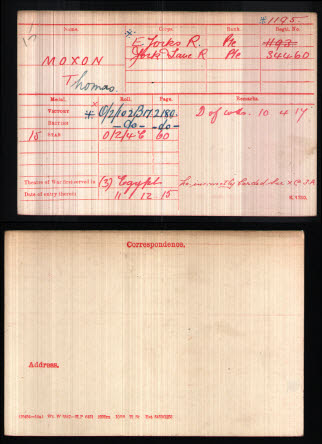 * 1195
Name. Corps. Rank. Regtl. No.
MOXON E. Yorks R. Pte 1193
Thomas York & Lanc R Pte 34460
Medal. Roll. Page. Remarks.
VICTORY * O/2/102 B17 2180. D of W. 10 4 17
BRITISH -do- -do-
15 STAR O/2/4C 60
Theatre of War first served in (3) Egypt
Date of entry therein 11 12 15 K 1380.
Correspondence.
Address.